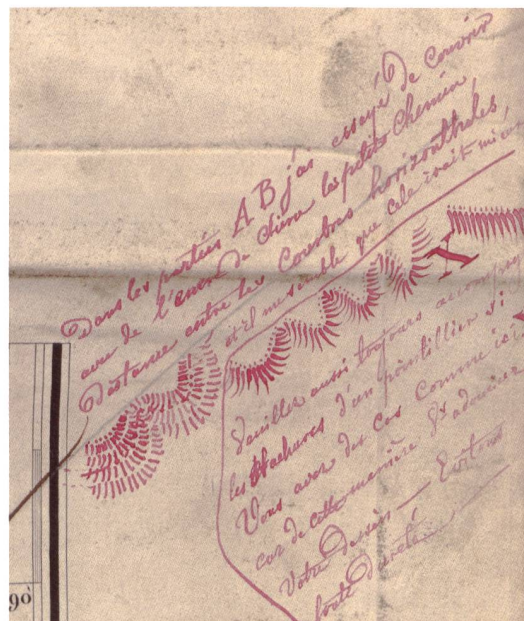 Dans les parties A B j'ai essayé de Couvrir
avec de l'encre de Chine les petits Chemin,
Distance entre les Courbes horizonthales,
et il me semble que cela irait mieux
X
Veuillez aussi toujours accompagner
les Hachures d'un pointillier si
Vous avez des Cas Comme ici
car de cette manière
Votre dessin — Evitons
toute dureté
90